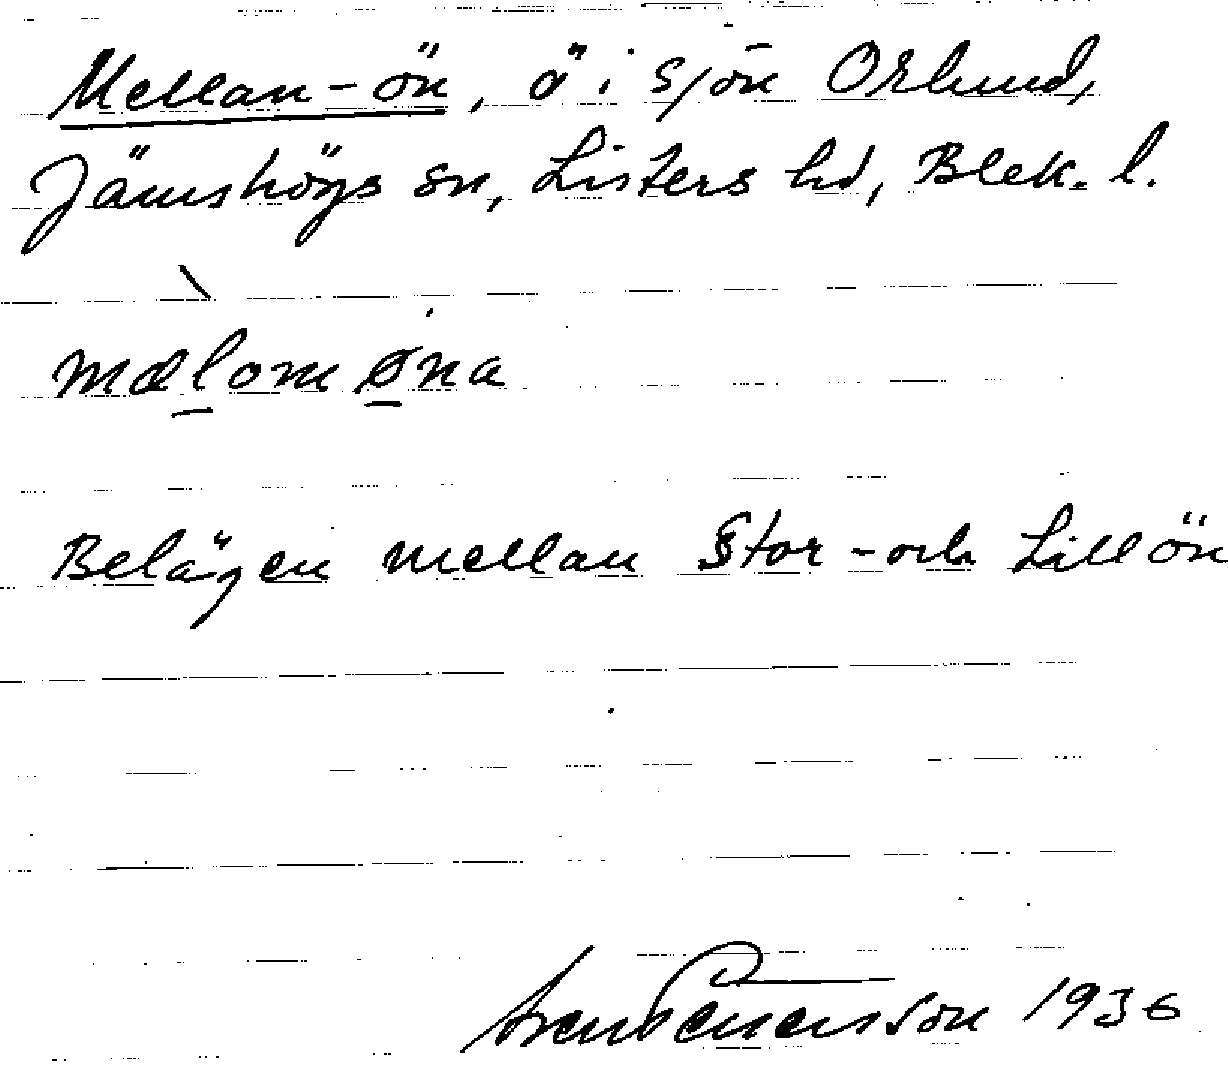 Mellan-ön, ö i sjön Orlund,
Jämshögs sn, Listers hd, Blek. l.
mælom øna
Belägen mellan Stor- och Lillön
1936